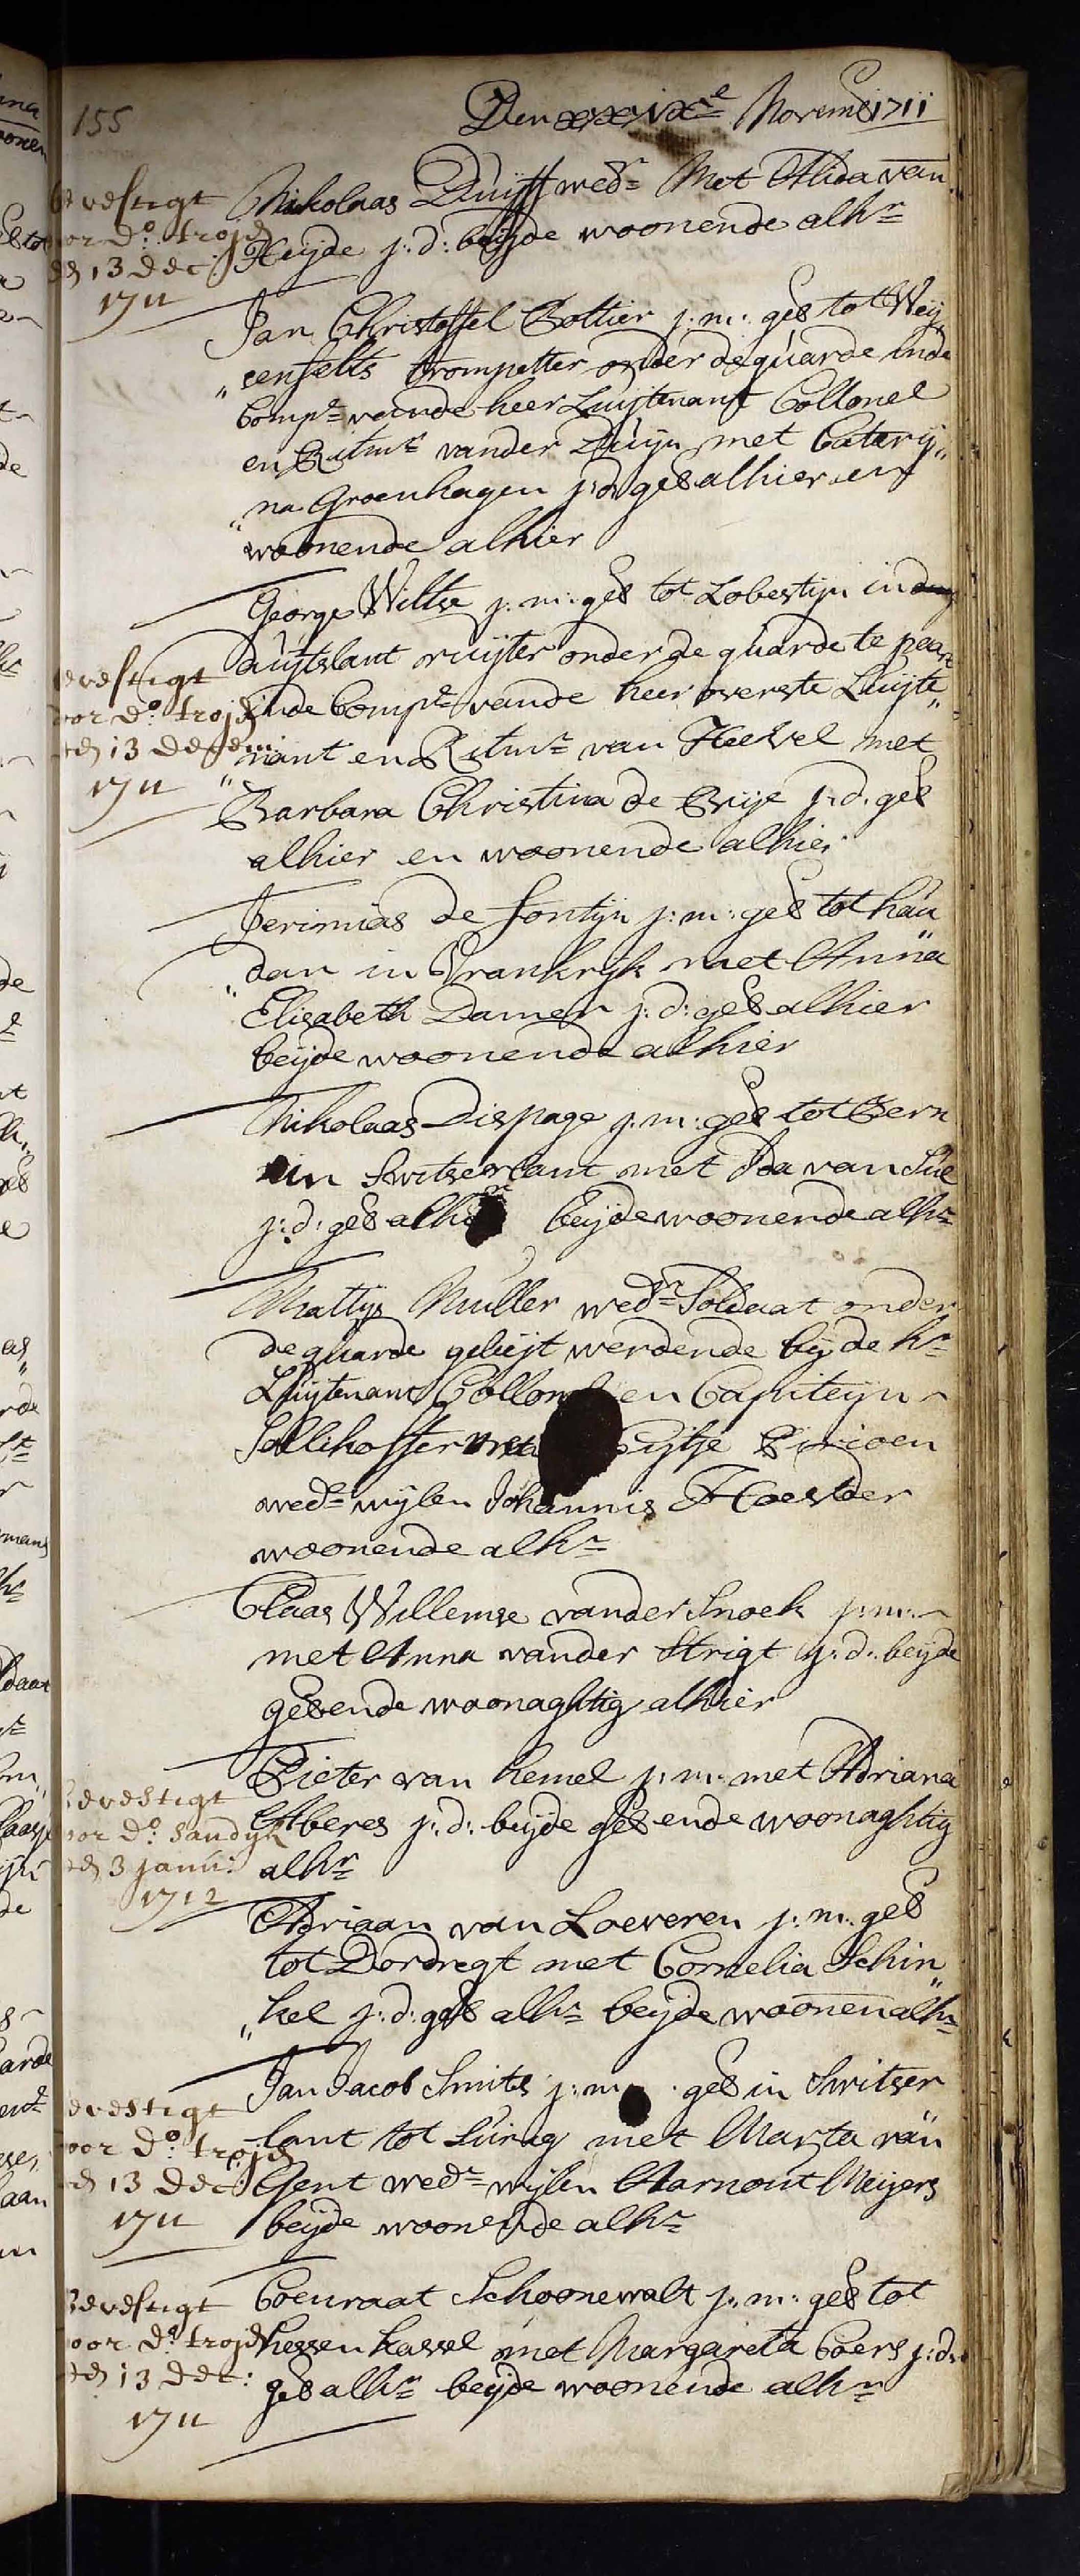 155
Den xxix.e Novemb 1711
bevestigt
voor do. trojes
den 13 dec:
1711
Nikolaas Duijff wedr Met Alida van
Heijde j:d: beijde woonende alhr
Jan Christoffel Bottier j:m: geb tot Weij
"senfelts trompetter onder de guarde inde
Compe vande heer Luijtenant Collonel
en Ritmr vander Duijn met Caterij"
"na Groenhagen j:d: geb alhier en
woonende alhier
bevestigt
voor do. trojes
den 13 desem:
1711
George Wiltse j:m: geb tot Lobestijn in
duijtslant ruijter onder de guarde te paar
inde Compe vande heer overste Luijte"
"nant en Ritmr van Heevel met
Barbara Christina de Brije j:d: geb
alhier en woonende alhier
Jerimias de fontijn j:m: geb tot hau
"dan in Vrankrijk met Anna
Elisabeth Damen j:d: geb alhier
beijde woonende alhier
Nikolaas Dispage j:m: geb tot Bern
in Switserlant met Ida van Sue
j:d: geb alhier beijde woonende alhr
Mattijs Muller wedr Soldaat onder
de guarde geleijt werdende bij de hr
Luijtenant Collonel en Capiteijn
Sollikoffer met Pirioen
wede wijlen Johannis Hoevder
woonende alhr
Claas Willemse vander Snoek j:m:
met Anna vander Strigt j:d: beijde
geb ende woonagtig alhier
bevestigt
voor do: Sandijk
den 3 janu:
1712
Pieter van hemel j:m: met Adriana
Alberes j:d: beijde geb ende woonagtig
alhr
Adriaan van Loeveren j:m: geb
tot Dordregt met Cornelia Schin"
"kel j:d: geb alhr beijde woonen alhr
bevestigt
voor do. trojes
den 13 dec:
1711
Jan Jacob Smits j:m: geb in Switser
lant tot Surig met Marta van
Gent wede wijlen Aarnout Meijers
beijde woonende alhr
Bevestigt
voor do. trojes
den 13 dec:
1711
Coenraat Schoonewalt j:m: geb tot
hessen kassel met Margareta Coers j:d:
geb alhr beijde woonende alhr